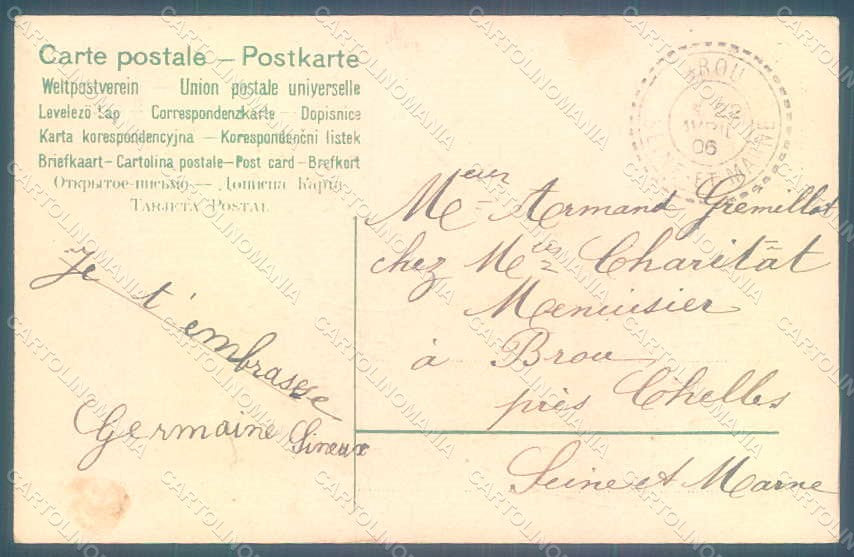 Carte postale — Postkarte
Weltpostverein Union postale universelle
Levelező Lap Correspondenzkarte – Dopisnice
Karta korespondencyjna – Korespondenční listek
Briefkaart – Cartolina postale – Post card – Brefkort
Открытое письмо — Дописна Карта
TARJETA POSTAL
BROU
22
AVRIL
06
SEINE-ET-MARNE
Meur Armand Gremillot
chez Mes Charität
Menuisier
à Brou
près Chelles
Seine et Marne
Je t'embrasse
Germaine Sineux
CARTOLINOMANIA